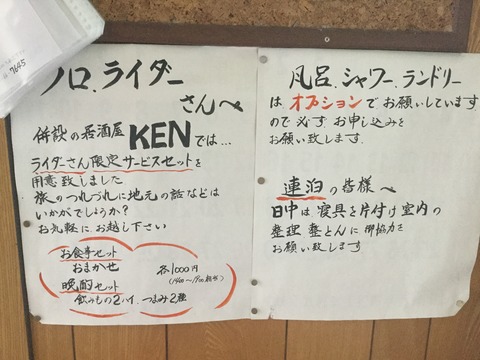 7645
ライダー
さんへ
併設の居酒屋 KENでは…
ライダーさん限定サービスセットを
用意致しました
旅のつれづれに地元の話などは
いかがでしょうか?
お気軽に お越し下さい
お食事セット
おまかせ
各1000円
晩酌セット
飲みもの2ハイ、つまみ2種
風呂、シャワー、ランドリー
は オプションでお願いしています
ので 必ず お申し込みを
お願い致します
連泊の皆様へ
日中は 寝具を片付け 室内の
整理 整とんに 御協力を
お願い致します